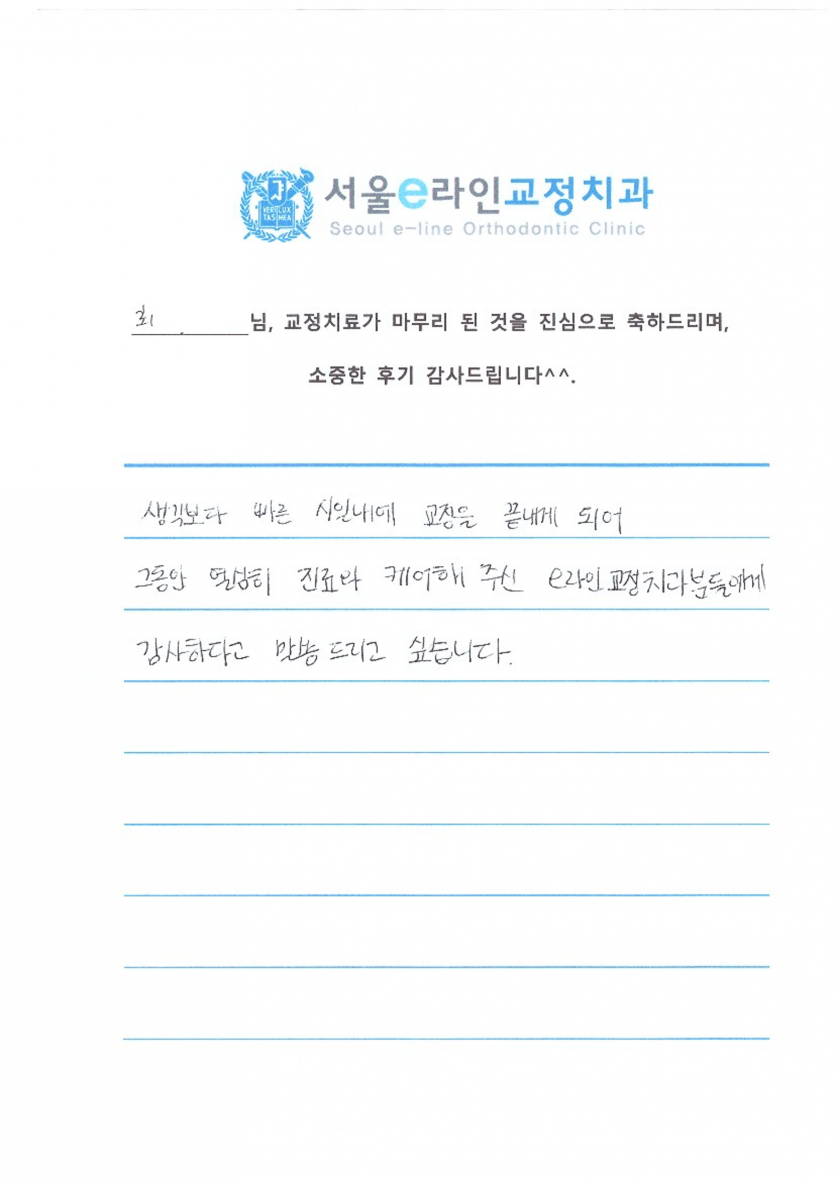 VERI LUX
TAS MEA
서울e라인교정치과
Seoul e-line Orthodontic Clinic
최 님, 교정치료가 마무리 된 것을 진심으로 축하드리며,
소중한 후기 감사드립니다^^.
생각보다 빠른 시일내에 교정을 끝내게 되어
그동안 열심히 진료와 케어해 주신 e라인교정치과분들에게
감사하다고 말씀 드리고 싶습니다.